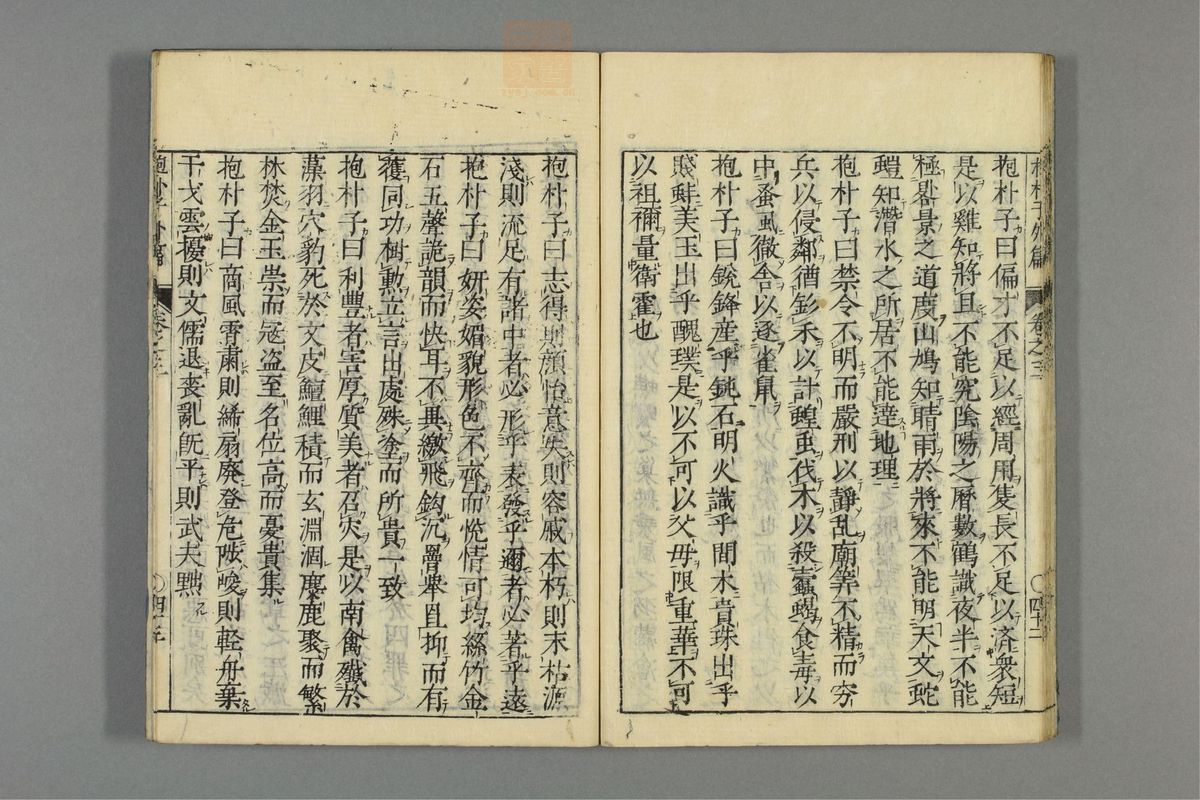 抱朴子外篇 卷之三 〇四十二
抱朴子曰偏才不足以經周用隻長不足以済衆短
是以雞知將旦不能究陰陽之曆數鶴識夜半不能
極晷景之道度山鳩知晴雨於將來不能明天文蛇
螘知潛水之所居不能達地理
抱朴子曰禁令不明而嚴刑以靜乱廟筭不精而窮
兵以侵鄰猶釤禾以計蝗虫伐木以殺蠹蝎食毒以
中蚤虱徹舍以逐雀鼠
抱朴子曰銳鋒産乎鈍石明火識乎闇木貴珠出乎
賤蚌美玉出乎醜璞是以不可以父母限重華不可
以祖禰量衛霍也
抱朴子曰志得則顏怡意失則容戚本朽則末枯源
淺則流足有諸中者必形乎表發乎邇者必著乎遠
抱朴子曰妍姿媚貌形色不齊而悅情可均絲竹金
石五聲詭韻而快耳不異繳飛鈎沉罾舉罝抑而有
獲同功樹動立言出處殊塗而所貴一致
抱朴子曰利豐者害厚質美者召灾是以南禽殲於
藻羽穴豹死於文皮鱣鯉積而玄淵涸麋鹿聚而繁
林焚金玉崇而冦盗至名位高而憂貴集
抱朴子曰商風宵肅則絺扇廢登危陟峻則輕舟棄
干戈雲擾則文儒退喪亂旣平則武夫黜
抱朴子外篇